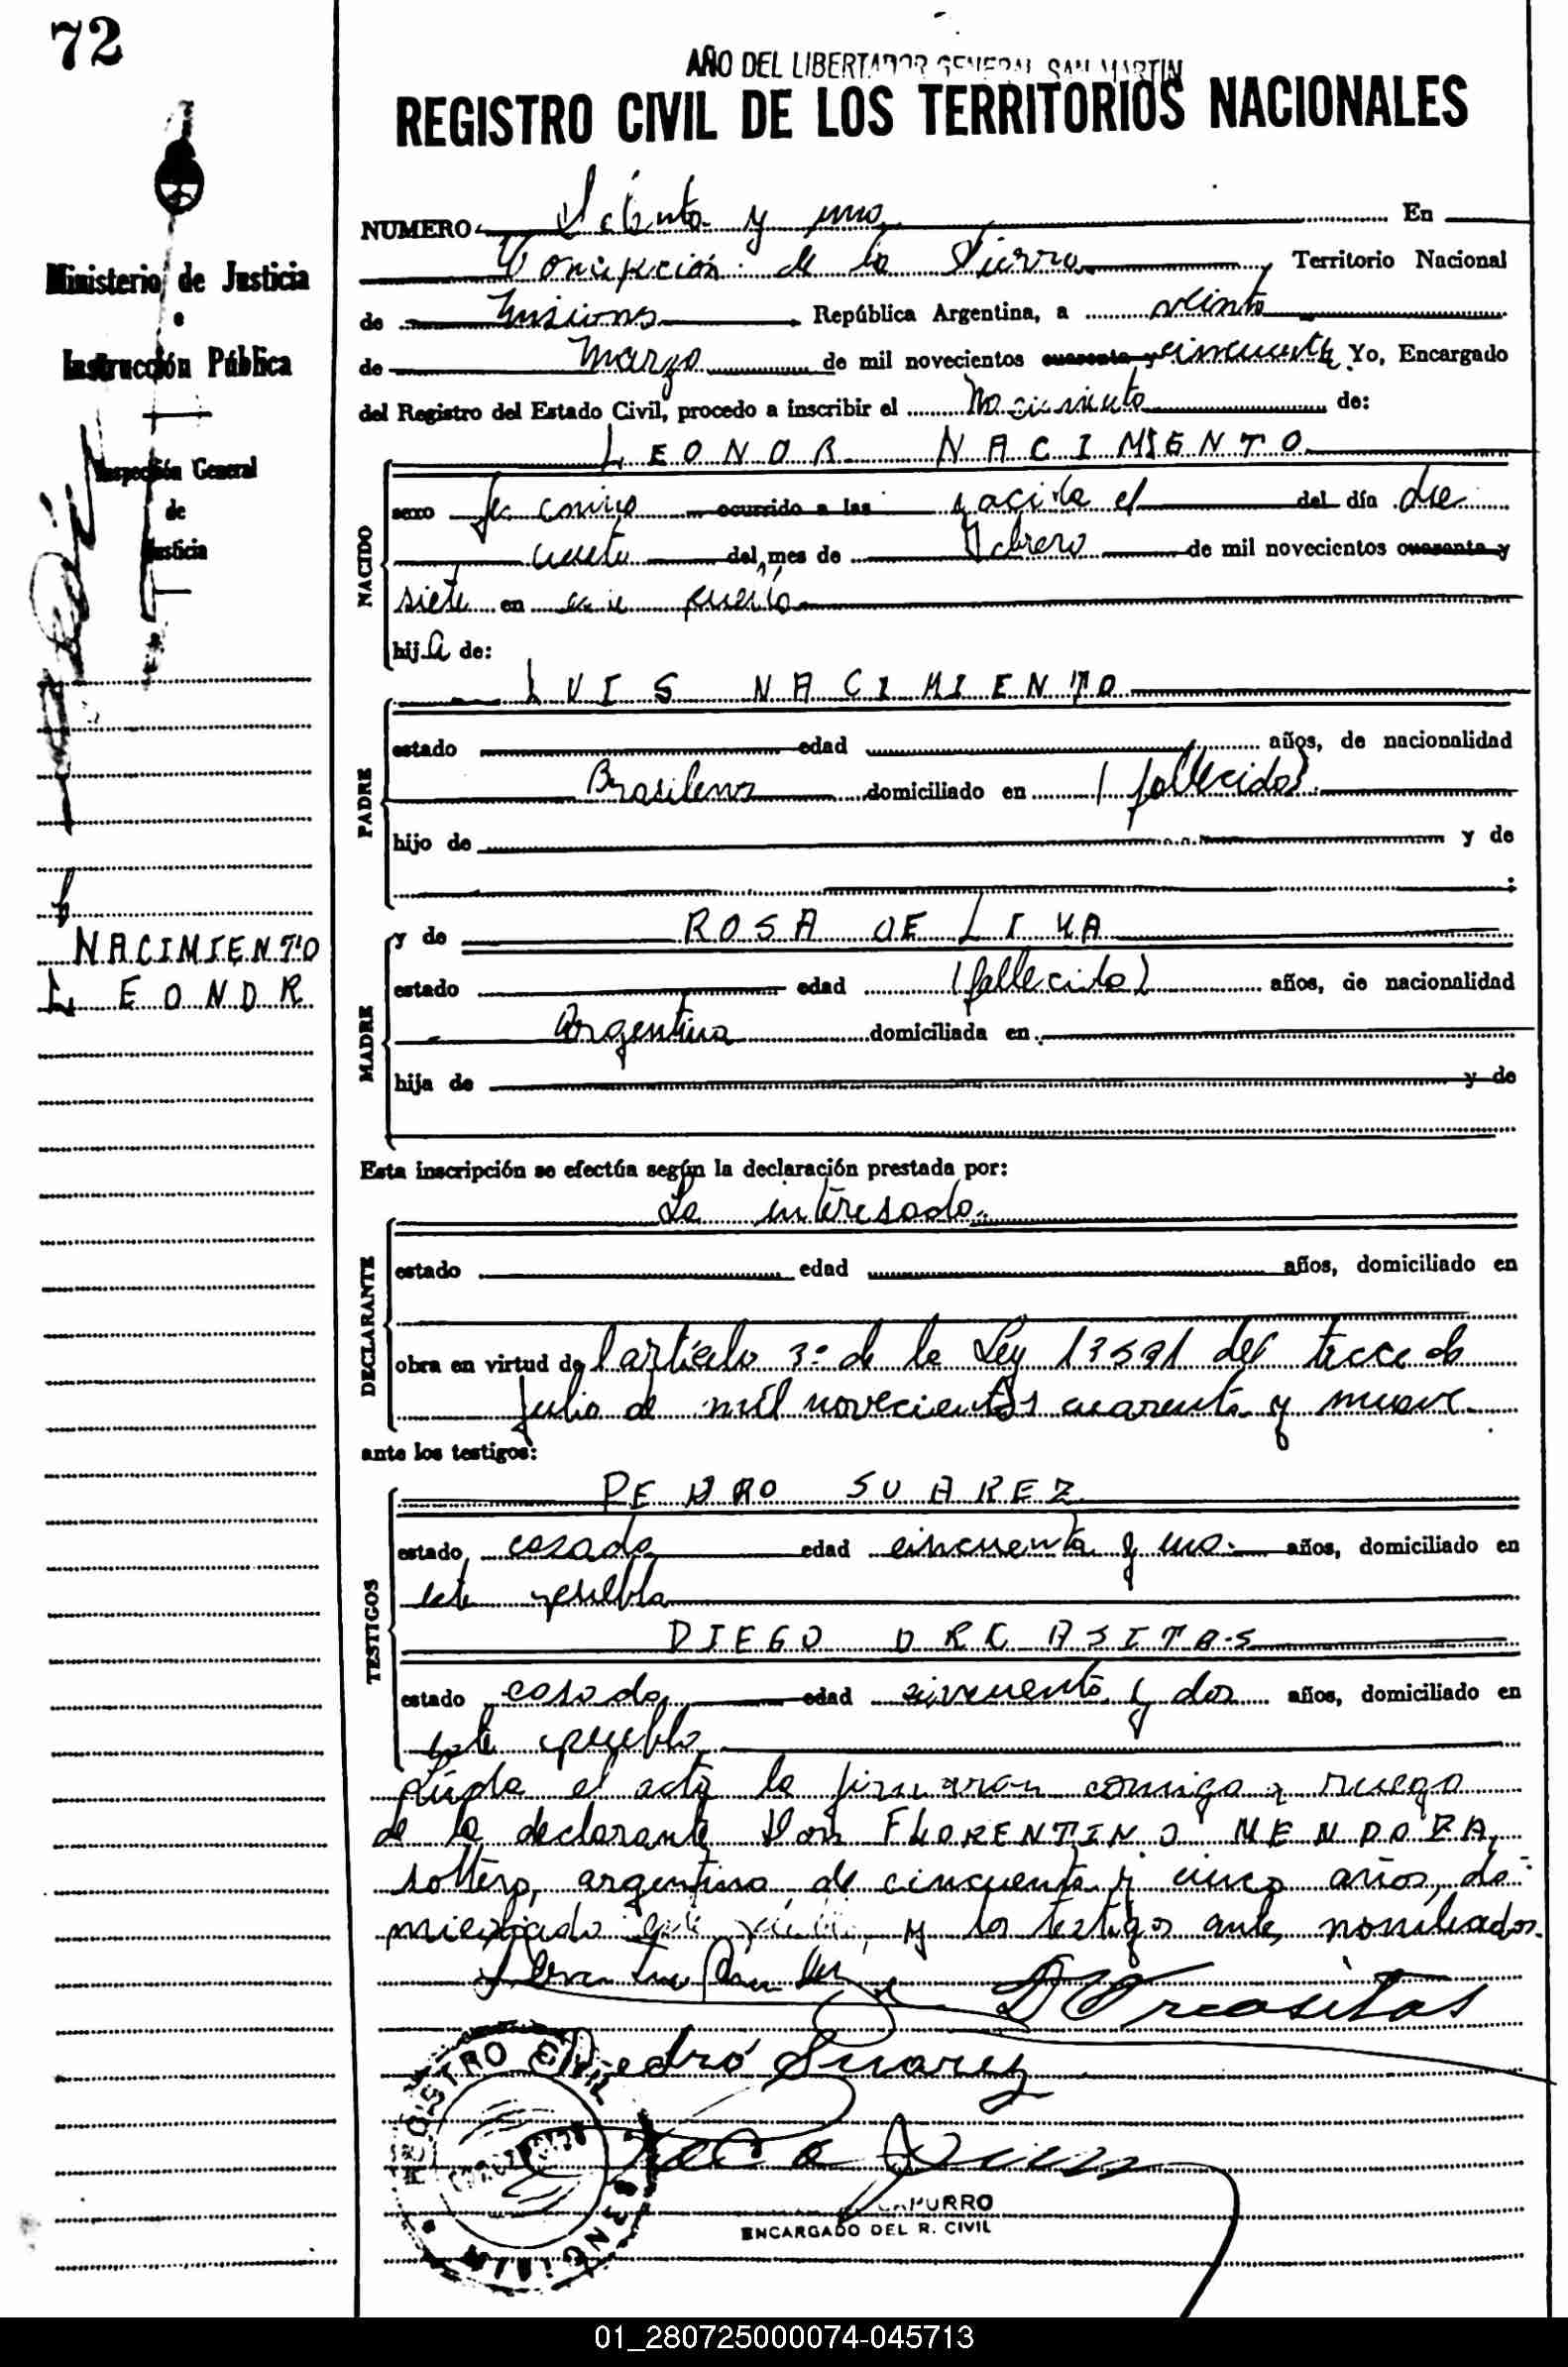 72
AÑO DEL LIBERTADOR GENERAL SAN MARTIN
REGISTRO CIVIL DE LOS TERRITORIOS NACIONALES
Ministerio de Justicia
e
Instrucción Pública
Inspección General
de
Justicia
NACIMIENTO
LEONOR
NUMERO Setenta y uno En
Concepción de la Sierra Territorio Nacional
de Misiones República Argentina, a veinte
de Marzo de mil novecientos cuarenta y cincuenta Yo, Encargado
del Registro del Estado Civil, procedo a inscribir el Nacimiento de:
NACIDO
LEONOR NACIMIENTO
sexo femenino ocurrido a las nacida el del día die
del mes de Febrero de mil novecientos cuarenta y
siete en este pueblo
hija de:
PADRE
LUIS NACIMIENTO
estado edad años, de nacionalidad
Brasilena domiciliado en (fallecido)
hijo de y de
MADRE
y de ROSA DE LIMA
estado edad (fallecida) años, de nacionalidad
Argentina domiciliada en
hija de y de
Esta inscripción se efectúa según la declaración prestada por:
DECLARANTE
La interesada
estado edad años, domiciliado en
obra en virtud del artículo 3º de la Ley 13591 del trece de
julio de mil novecientos cuarenta y nueve
ante los testigos:
TESTIGOS
PEDRO SUAREZ
estado casado edad cincuenta y uno años, domiciliado en
este pueblo
DIEGO ORCASITAS
estado casado edad cincuenta y dos años, domiciliado en
este pueblo
Leída el acta la firmaron conmigo a ruego
de la declarante Don FLORENTINO MENDOZA,
soltero, argentino de cincuenta y cinco años, do-
miciliado este pueblo, y los testigos ante nombrados.
D Orcasitas
Pedro Suarez
REGISTRO CIVIL
CAPURRO
ENCARGADO DEL R. CIVIL
01_280725000074-045713